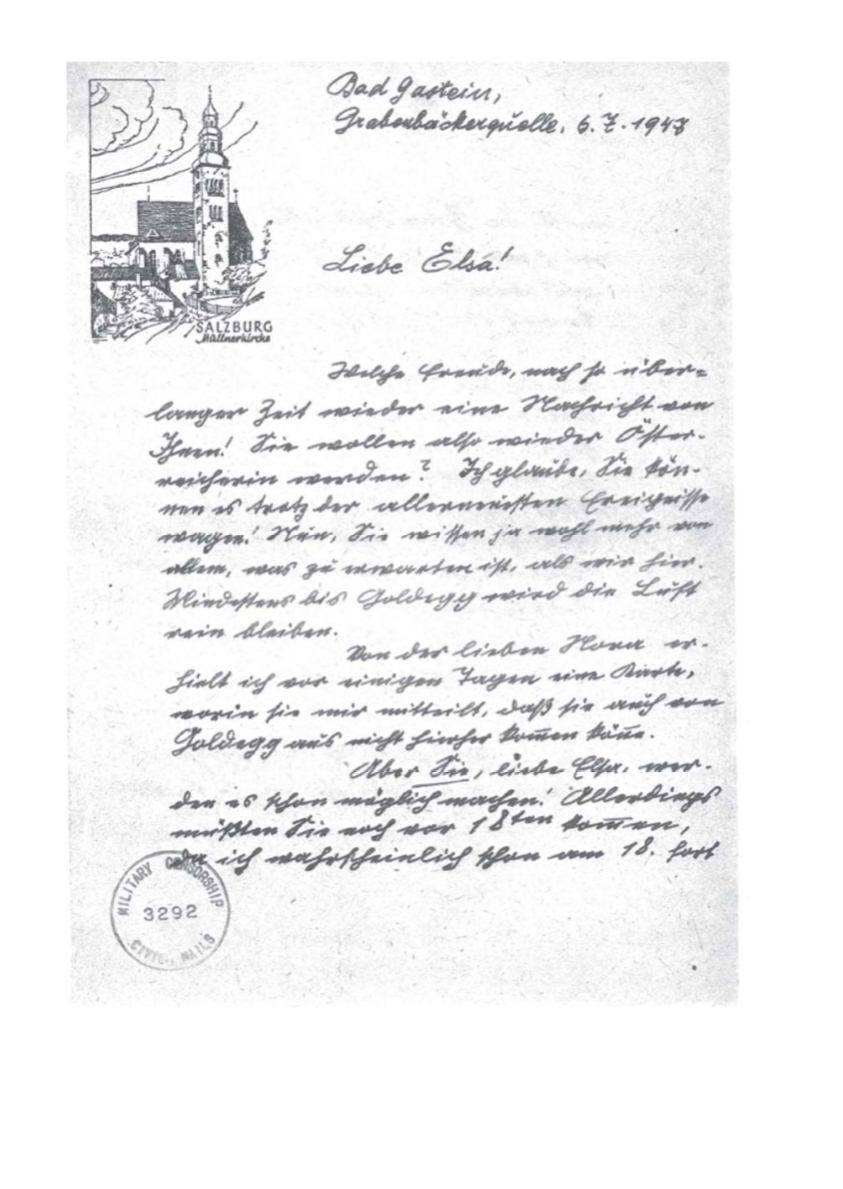 Bad Gastein,
Grabenbäckerquelle, 6.7.1947
SALZBURG
Müllnerkirche
Liebe Elsa!
Welche Freude, nach so über=
langer Zeit wieder eine Nachricht von
Ihnen! Sie wollen also wieder Öster-
reicherin werden? Ich glaube, Sie kön-
nen es trotz der allerneusten Ereignisse
wagen! Nun, Sie wissen ja wohl mehr von
allem, was zu erwarten ist, als wir hier.
Mindestens bis Goldegg wird die Luft
rein bleiben.
Von der lieben Nora er-
hielt ich vor einigen Tagen eine Karte,
worin sie mir mitteilt, daß sie auch von
Goldegg aus nicht hierher kom̄en kön̄e.
Aber Sie, liebe Elsa, wer-
den es schon möglich machen! Allerdings
müßten Sie noch vor 18ten kom̄en,
da ich wahrscheinlich schon am 18. fort
MILITARY CENSORSHIP
3292
CIVIL MAILS